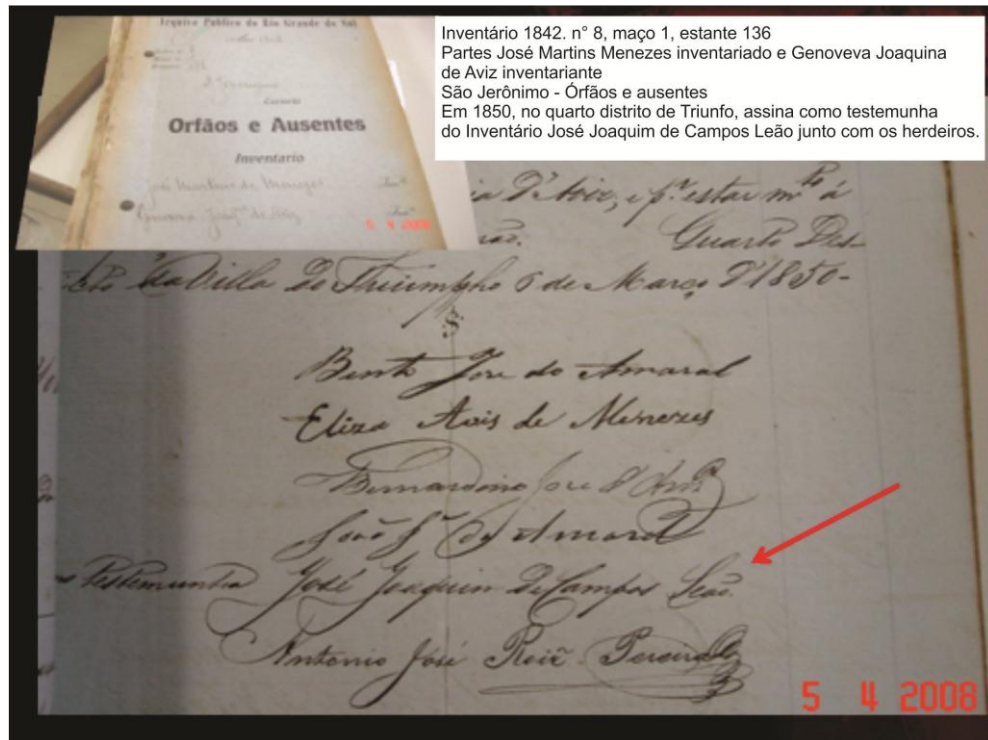 Arquivo Público do Rio Grande do Sul
Orfãos e Ausentes
Inventario
José Martins de Menezes
5 4 2008
Inventário 1842. n° 8, maço 1, estante 136
Partes José Martins Menezes inventariado e Genoveva Joaquina
de Aviz inventariante
São Jerônimo - Órfãos e ausentes
Em 1850, no quarto distrito de Triunfo, assina como testemunha
do Inventário José Joaquim de Campos Leão junto com os herdeiros.
D'Aviz, e pr. estar mto á
Quarto Des-
da Villa do Thriumpho 6 de Março D'1850-
Bento Jose do Amaral
Eliza Avis de Menezes
Bernardino Jose d'
João do Amaral
Testemunha José Joaquim De Campos Leão.
Antonio José Pereira
5 4 2008